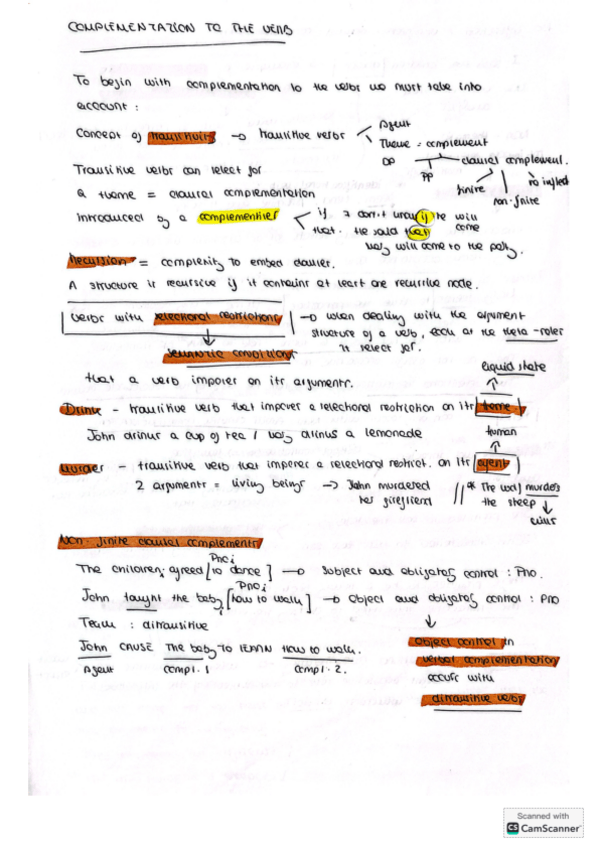 COMPLEMENTATION TO THE VERB
To begin with complementation to the verbs we must take into
account :
Concept of transitivity → transitive verbs
Agent
Theme = complement
DP
PP
clausal complement.
finite
non-finite
no inflect
Transitive verbs can select for
a theme = clausal complementation
introduced by a complementiser
if I don't know if he will come
that. He said that
Mary will come to the party.
Recursion = complexity to embed clauses.
A structure is recursive if it contains at least one recursive node.
Verbs with selectional restrictions → when dealing with the argument
structure of a verb, such as the theta-roles
it select for.
semantic conditions
that a verb imposes on its arguments.
liquid state
Drink - transitive verb that imposes a selectional restriction on its theme
John drinks a cup of tea / Mary drinks a lemonade
Human
Murder - transitive verb that imposes a selectional restrict. on its agent
2 arguments = living beings → John murdered
his girlfriend
// * The wolf murders
the sheep
kills
Non-finite clausal complements
PROi
The childreni agreed [to dance] → Subject and obligatory control : PRO.
PROi
John taught the babyi [how to walk] → Object and obligatory control : PRO
Teach : ditransitive
John CAUSE The baby to LEARN How to walk.
Agent compl. 1 compl. 2.
object control in
verbal complementation
occurs with
ditransitive verbs
Scanned with
CS CamScanner